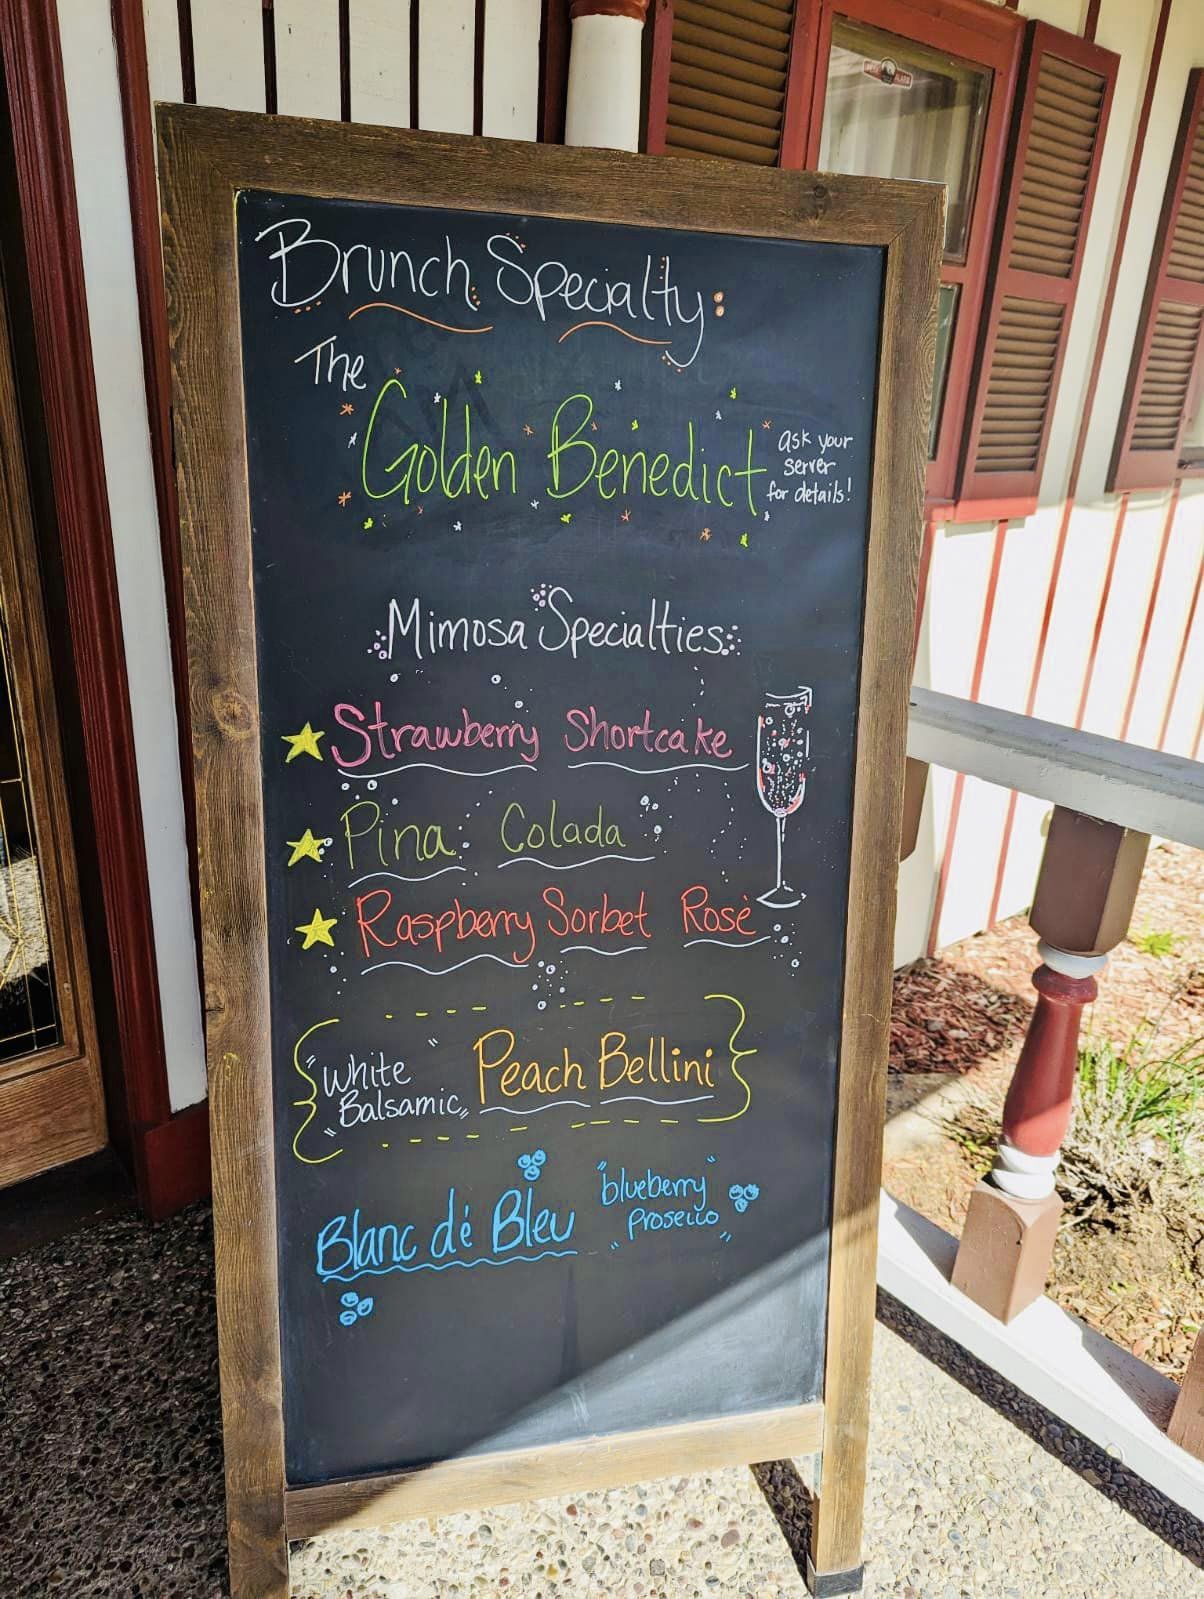 Brunch Specialty:
The
Golden Benedict
ask your
server
for details!
Mimosa Specialties
Strawberry Shortcake
Pina Colada
Raspberry Sorbet Rosè
"White
Balsamic" Peach Bellini
Blanc dé Bleu
"blueberry
Prosecco"